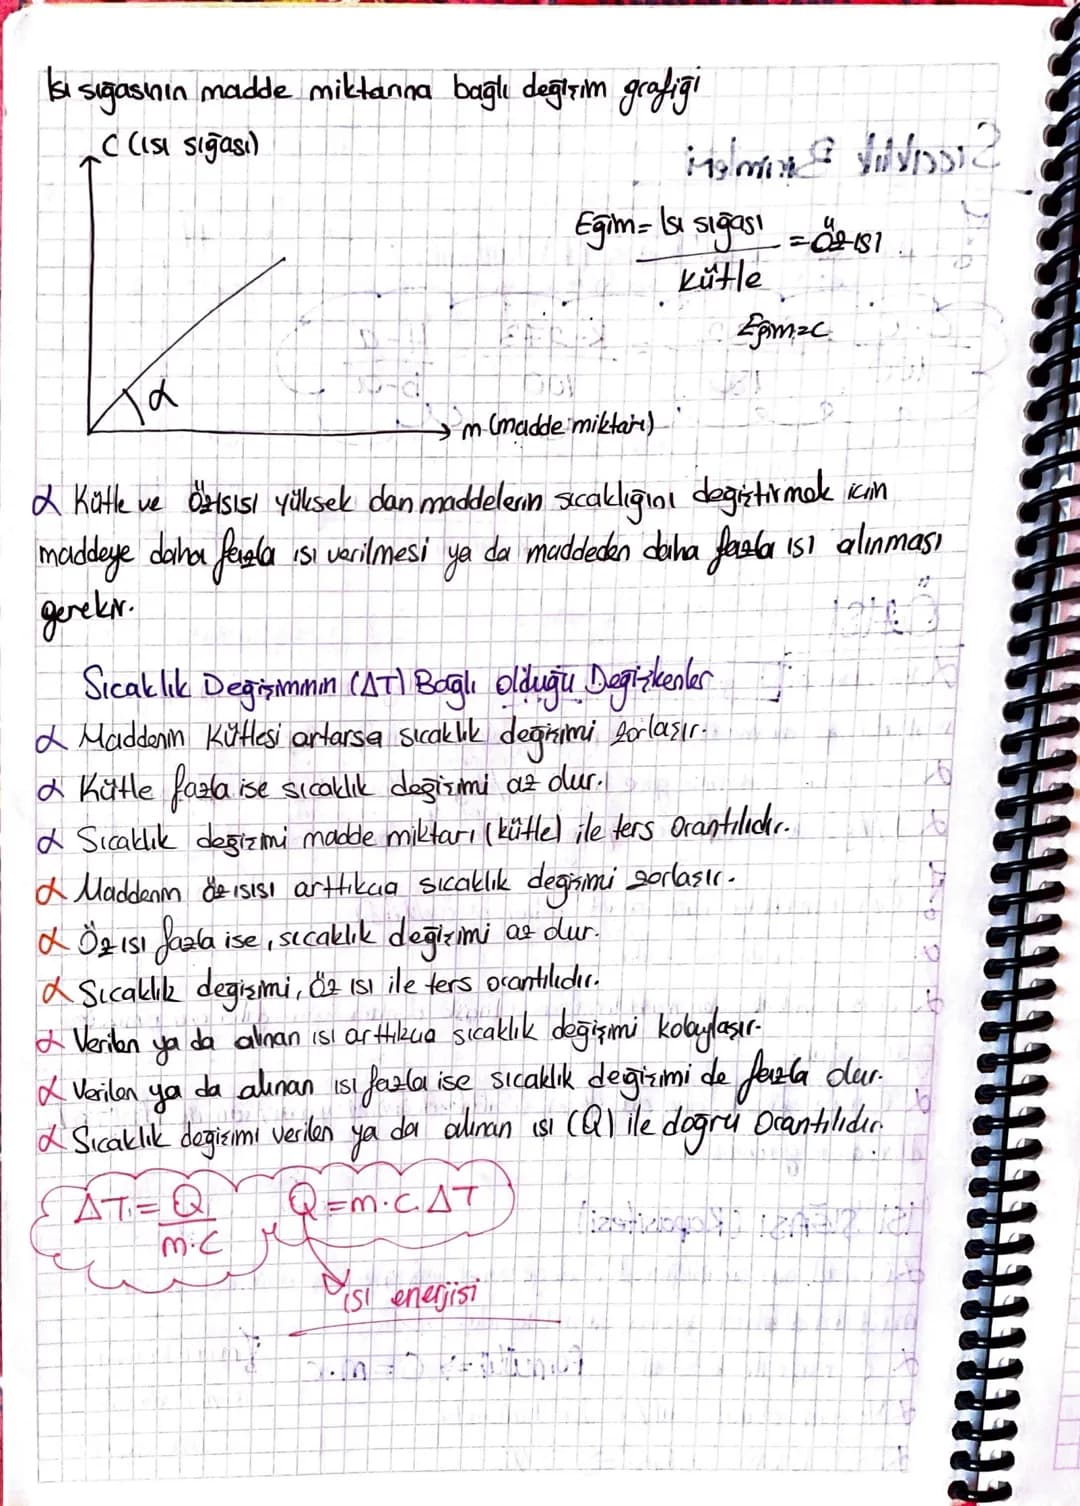 Isı sığasının madde miktarına bağlı değişim grafiği
C (ısı sığası)
Eğim = Isı sığası = Öz ısı
Kütle
Eğim=c
α
m (madde miktarı)
α Kütle ve Öz ısısı yüksek olan maddelerin sıcaklığını değiştirmek için
maddeye daha fazla ısı verilmesi ya da maddeden daha fazla ısı alınması
gerekir.
Sıcaklık Değişiminin (ΔT) Bağlı olduğu Değişkenler
α Maddenin Kütlesi artarsa sıcaklık değişimi zorlaşır.
α Kütle fazla ise sıcaklık değişimi az olur.
α Sıcaklık değişimi madde miktarı (kütle) ile ters orantılıdır.
α Maddenin öz ısısı arttıkça sıcaklık değişimi zorlaşır.
α Öz ısı fazla ise, sıcaklık değişimi az olur.
α Sıcaklık değişimi, öz ısı ile ters orantılıdır.
α Verilen ya da alınan ısı arttıkça sıcaklık değişimi kolaylaşır.
α Verilen ya da alınan ısı fazla ise sıcaklık değişimi de fazla olur.
α Sıcaklık değişimi verilen ya da alınan ısı (Q) ile doğru orantılıdır.
ΔT = Q Q=m.c.ΔT
m.c
ısı enerjisi